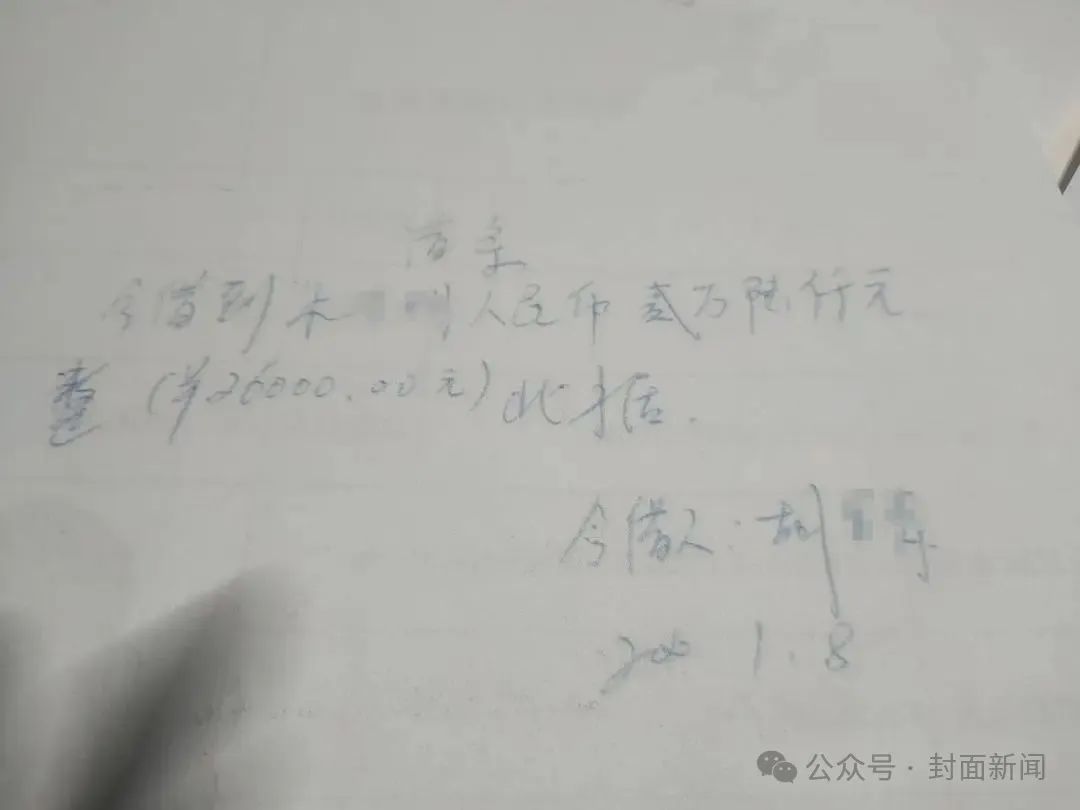 借条
今借到朱 人民币贰万陆仟元
整(¥26000.00元)此才居.
今借人:胡
200 1.8
公众号·封面新闻